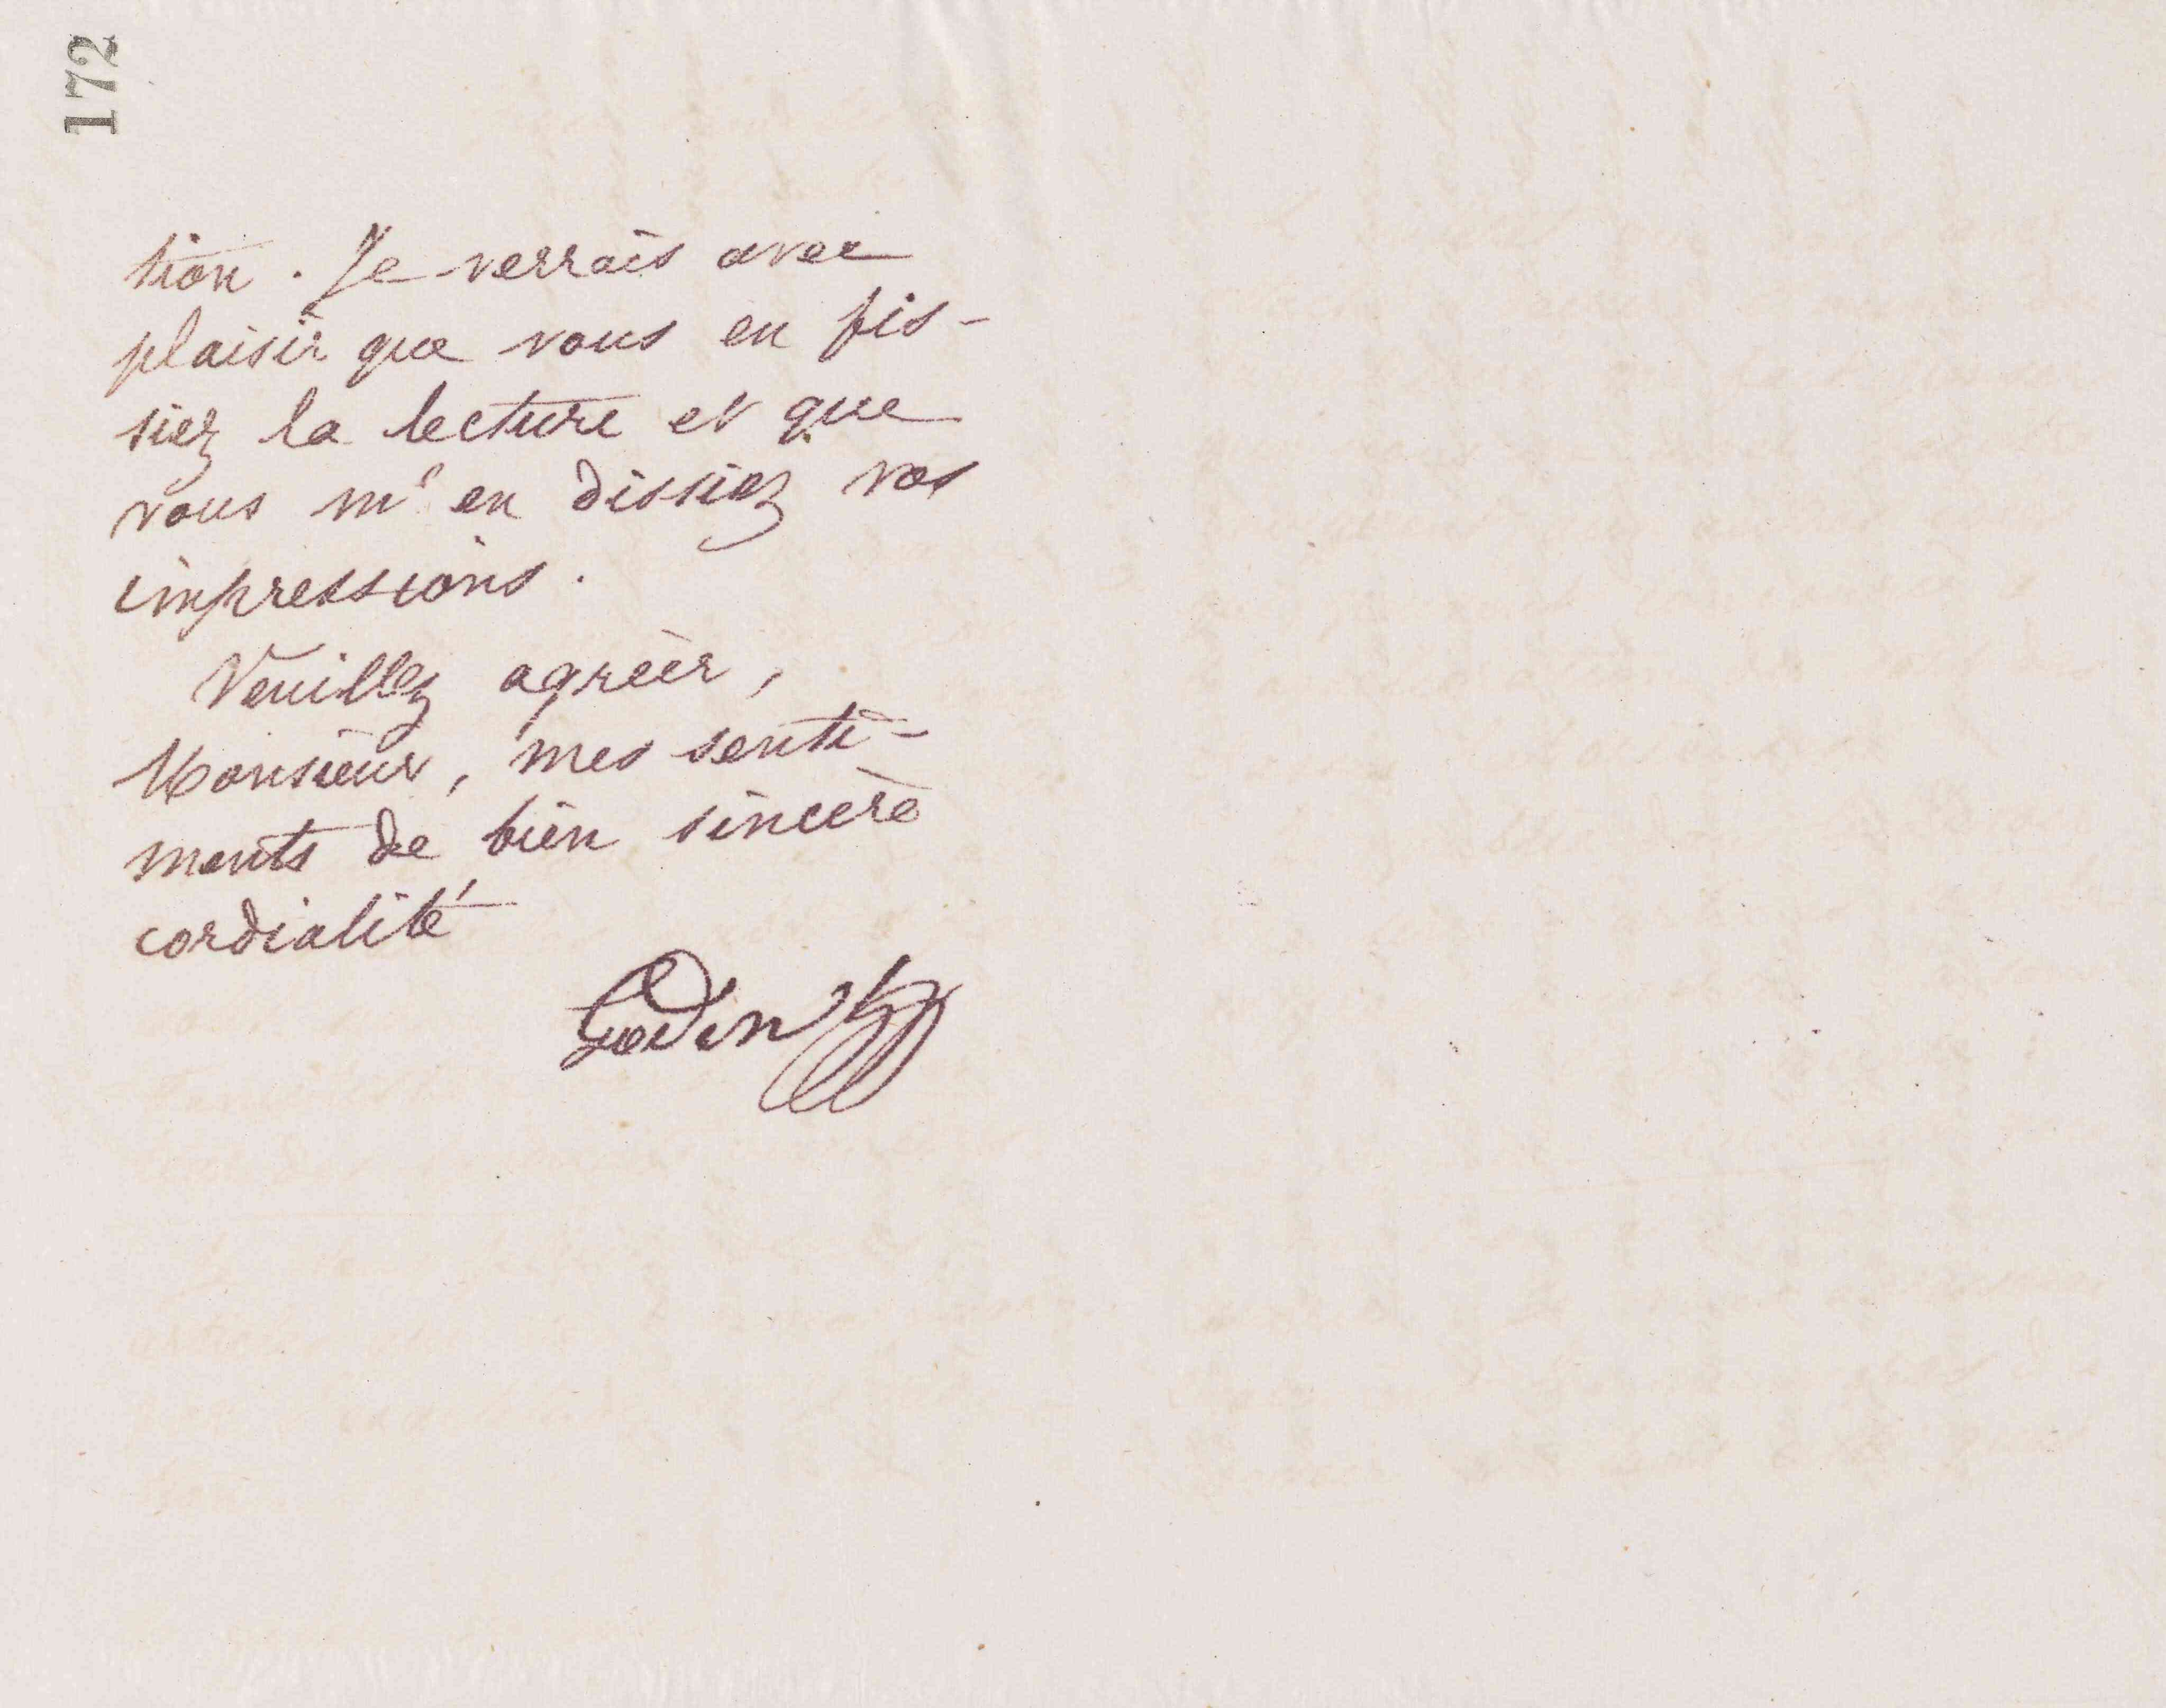 172
tion. Je verrais avec
plaisir que vous en fis-
siez la lecture et que
vous m'en dissiez vos
impressions.
Veuillez agréer,
Monsieur, mes senti-
ments de bien sincère
cordialité
Godin